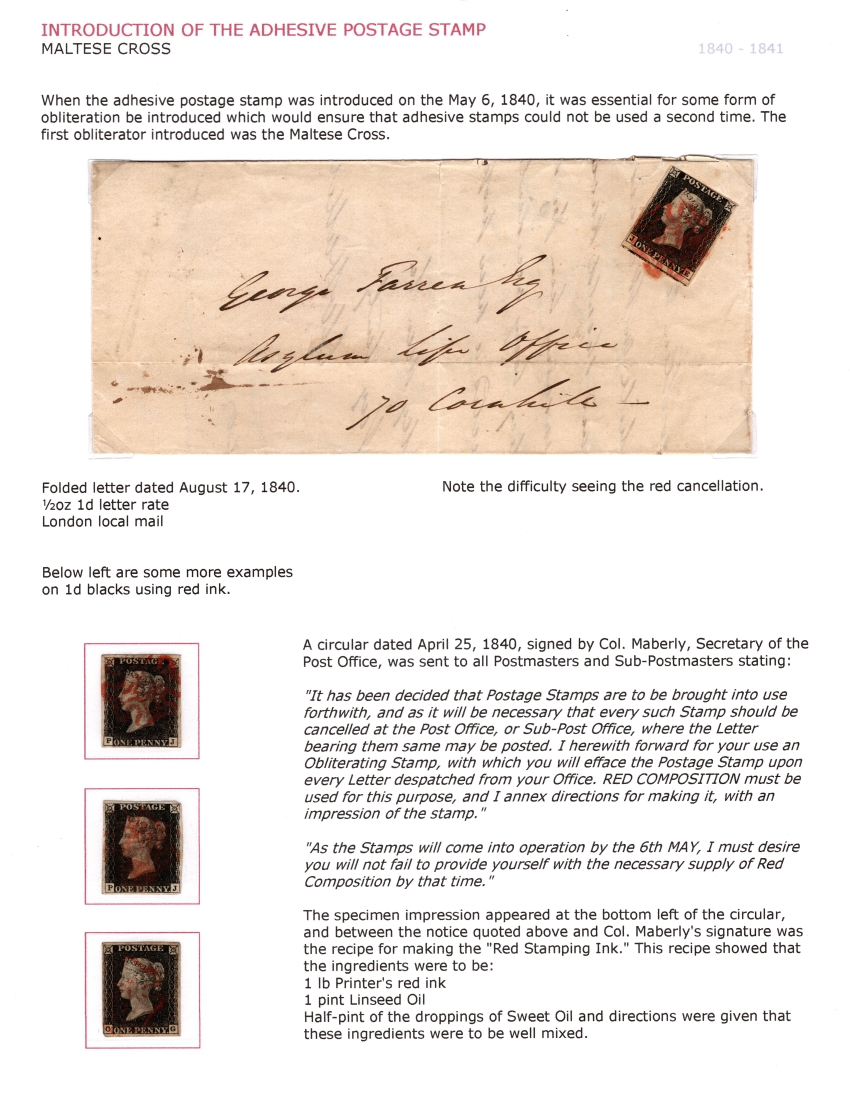 INTRODUCTION OF THE ADHESIVE POSTAGE STAMP
MALTESE CROSS
1840 - 1841
When the adhesive postage stamp was introduced on the May 6, 1840, it was essential for some form of
obliteration be introduced which would ensure that adhesive stamps could not be used a second time. The
first obliterator introduced was the Maltese Cross.
POSTAGE
ONE PENNY
George Farren Esq
Asylum Life Office
70 Cornhill
Folded letter dated August 17, 1840.
½oz 1d letter rate
London local mail
Note the difficulty seeing the red cancellation.
Below left are some more examples
on 1d blacks using red ink.
POSTAGE
P ONE PENNY J
POSTAGE
P ONE PENNY J
POSTAGE
G ONE PENNY G
A circular dated April 25, 1840, signed by Col. Maberly, Secretary of the
Post Office, was sent to all Postmasters and Sub-Postmasters stating:
"It has been decided that Postage Stamps are to be brought into use
forthwith, and as it will be necessary that every such Stamp should be
cancelled at the Post Office, or Sub-Post Office, where the Letter
bearing them same may be posted. I herewith forward for your use an
Obliterating Stamp, with which you will efface the Postage Stamp upon
every Letter despatched from your Office. RED COMPOSITION must be
used for this purpose, and I annex directions for making it, with an
impression of the stamp."
"As the Stamps will come into operation by the 6th MAY, I must desire
you will not fail to provide yourself with the necessary supply of Red
Composition by that time."
The specimen impression appeared at the bottom left of the circular,
and between the notice quoted above and Col. Maberly's signature was
the recipe for making the "Red Stamping Ink." This recipe showed that
the ingredients were to be:
1 lb Printer's red ink
1 pint Linseed Oil
Half-pint of the droppings of Sweet Oil and directions were given that
these ingredients were to be well mixed.